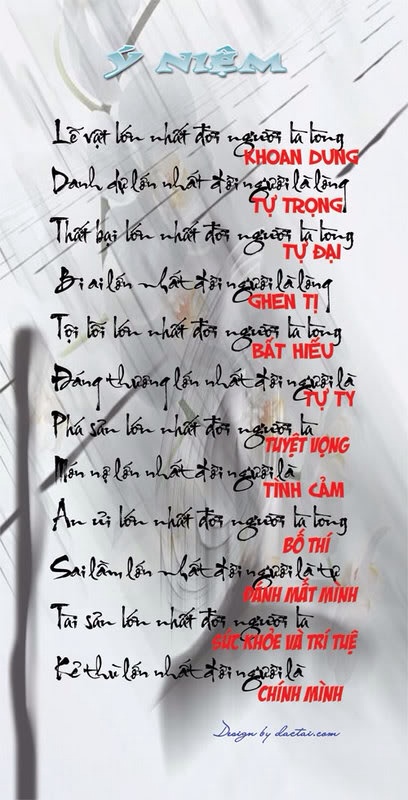 Ý NIỆM
Lễ vật lớn nhất đời người là lòng
KHOAN DUNG
Danh dự lớn nhất đời người là lòng
TỰ TRỌNG
Thất bại lớn nhất đời người là lòng
TỰ ĐẠI
Bi ai lớn nhất đời người là lòng
GHEN TỊ
Tội lỗi lớn nhất đời người là lòng
BẤT HIẾU
Đáng thương lớn nhất đời người là
TỰ TY
Phá sản lớn nhất đời người là
TUYỆT VỌNG
Món nợ lớn nhất đời người là
TÌNH CẢM
An ủi lớn nhất đời người là lòng
BỐ THÍ
Sai lầm lớn nhất đời người là tự
ĐÁNH MẤT MÌNH
Tài sản lớn nhất đời người là
SỨC KHỎE VÀ TRÍ TUỆ
Kẻ thù lớn nhất đời người là
CHÍNH MÌNH
Design by dactai.com